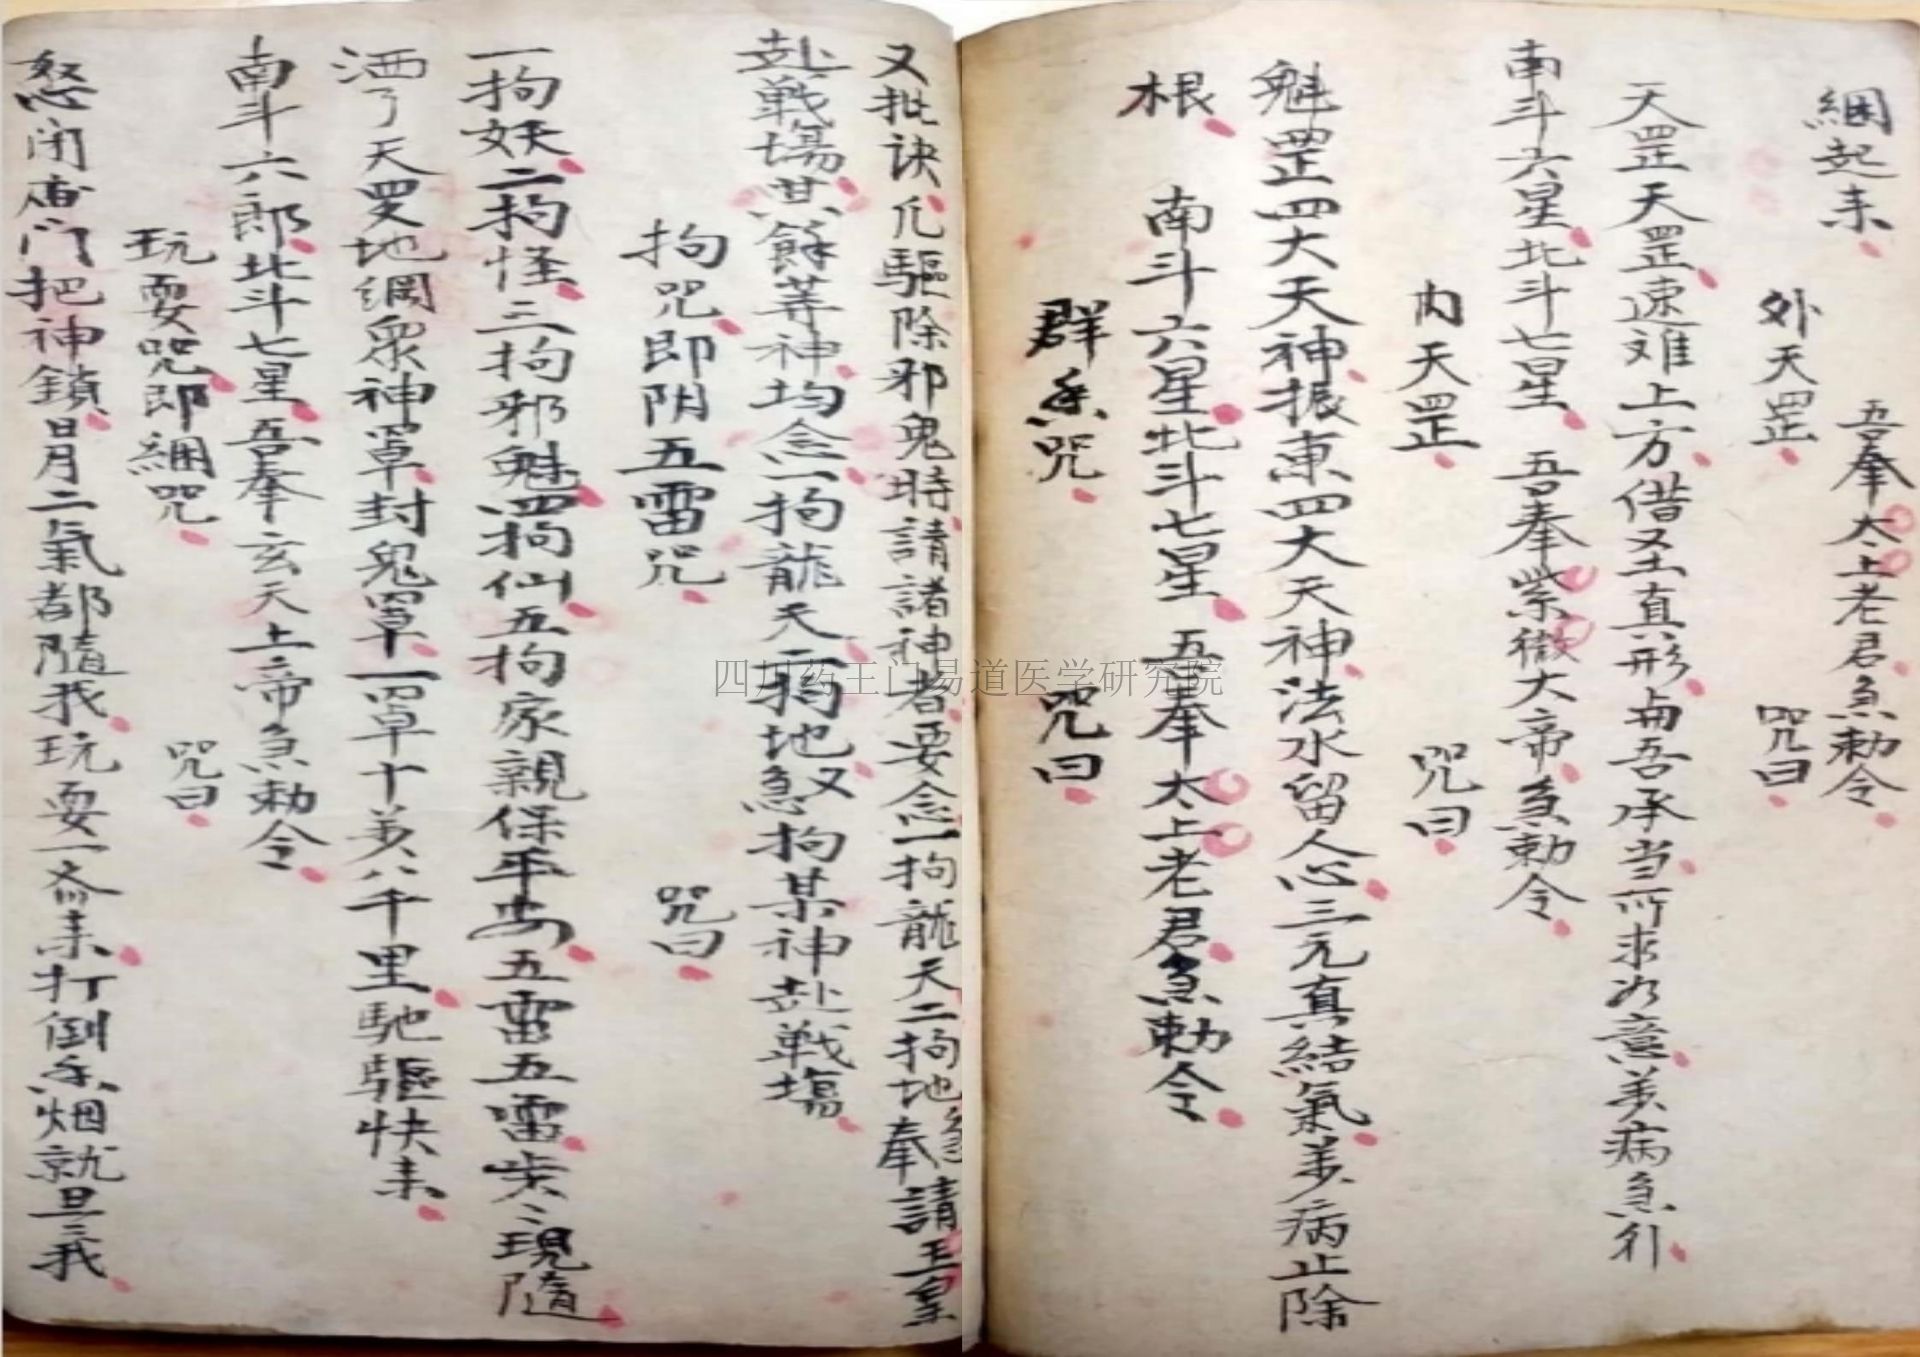 綑起来
吾奉太上老君急勅令
外天罡 咒曰
天罡天罡速难上方借又土真形与吾承当所求如意美病急行
南斗六星北斗七星 吾奉紫微大帝急勅令
内天罡 咒曰
魁罡四大天神振東四大天神法水留人心三元真結氣美病止除
根 南斗六星北斗七星 吾奉太上老君急勅令
群魚咒 咒曰
又批訣凡驅除邪鬼時請諸神者要念一拘龍天二拘地急奉請玉皇
赴戦場其餘等神均念一拘龍天二拘地急又拘某神赴戦場
拘咒即阴五雷咒 咒曰
一拘妖二拘怪三拘邪魁四拘仙五拘家親保平安五雷五雷步〻現隨
洒了天罗地綱衆神罩封鬼罩一罩十美八千里馳驅快来
南斗六郎北斗七星吾奉玄天上帝急勅令
玩耍咒即綑咒 咒曰
怒闭庙门把神鎖日月二氣都隨我玩耍一斎来打倒香烟就旦我
四川药王门易道医学研究院